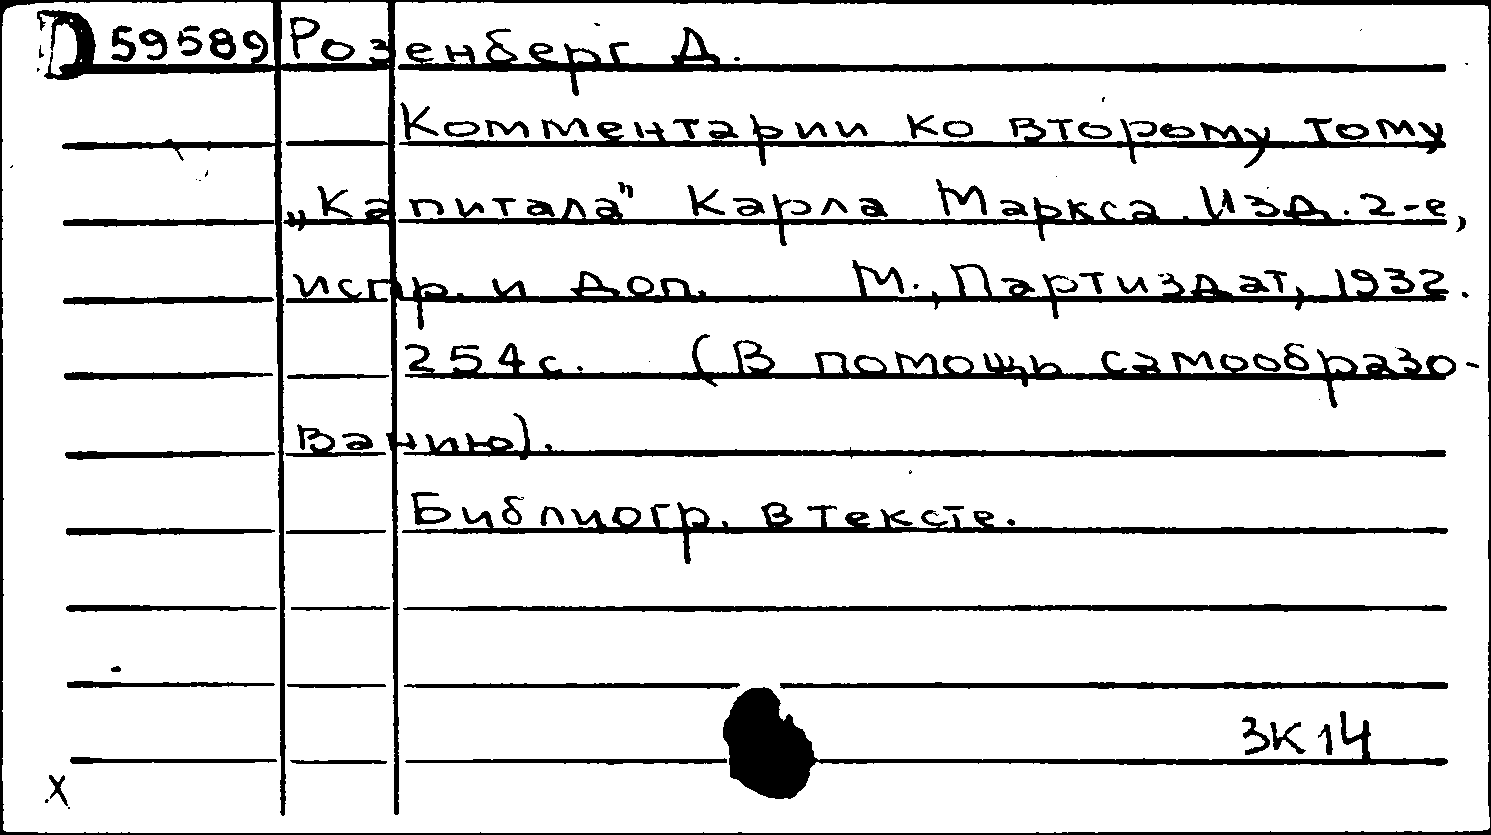 D 59589 Розенберг Д.
Комментарии ко второму тому
„Капитала" Карла Маркса. Изд. 2-е,
испр. и доп. М., Партиздат, 1932.
254 с. (В помощь самообразо-
ванию).
Библиогр. в тексте.
3К14
х